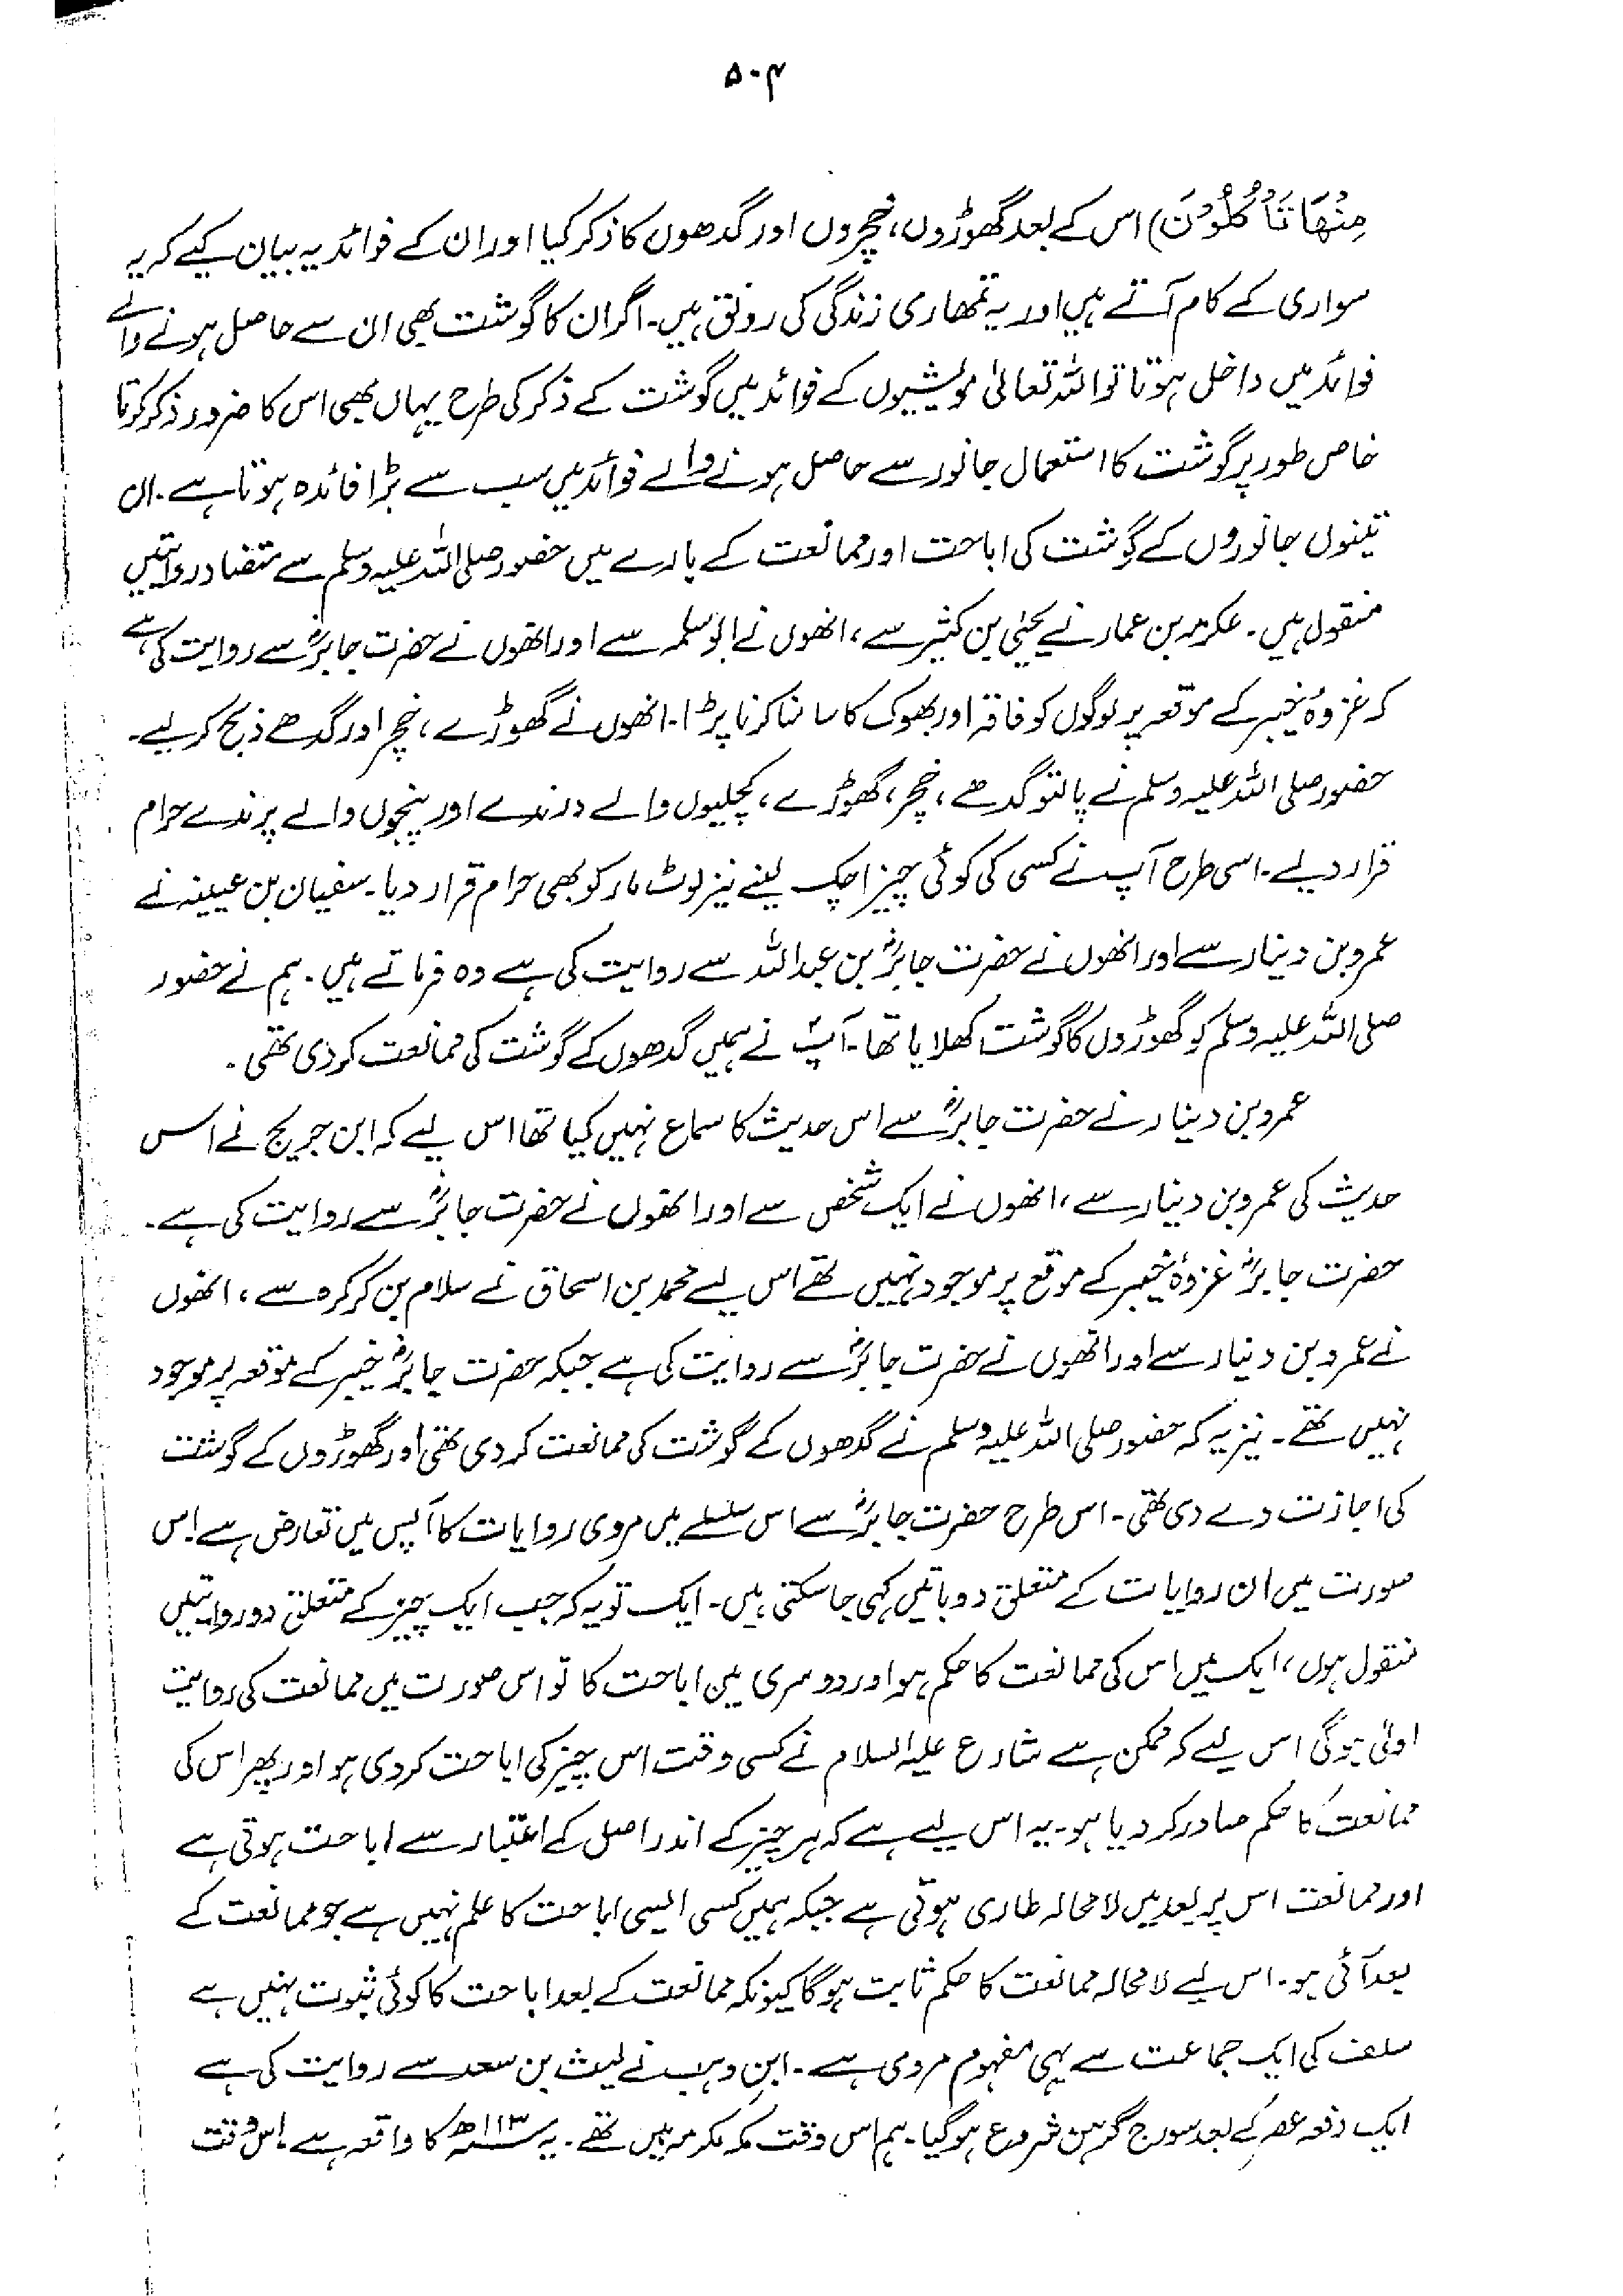 ۵۰۴
مِنْهَا تَأْكُلُوْنَ) اس کے بعد گھوڑوں، خچروں اور گدھوں کا ذکر کیا اور ان کے فوائد یہ بیان کیے کہ یہ
سواری کے کام آتے ہیں اور یہ تمھاری زندگی کی رونق ہیں۔ اگر ان کا گوشت بھی ان سے حاصل ہونے والے
فوائد میں داخل ہوتا تو اللہ تعالیٰ مویشیوں کے فوائد میں گوشت کے ذکر کی طرح یہاں بھی اس کا ضرور ذکر کرتا
خاص طور پر گوشت کا استعمال جانور سے حاصل ہونے والے فوائد میں سب سے بڑا فائدہ ہوتا ہے۔ ان
تینوں جانوروں کے گوشت کی اباحت اور ممانعت کے بارے میں حضور صلی اللہ علیہ وسلم سے متضاد روایتیں
منقول ہیں۔ عکرمہ بن عمار نے یحییٰ بن کثیر سے، انھوں نے ابوسلمہ سے اور انھوں نے حضرت جابرؓ سے روایت کی ہے
کہ غزوۂ خیبر کے موقعہ پر لوگوں کو فاقہ اور بھوک کا سامنا کرنا پڑا۔ انھوں نے گھوڑے، خچر اور گدھے ذبح کر لیے۔
حضور صلی اللہ علیہ وسلم نے پالتو گدھے، خچر، گھوڑے، کچلیوں والے درندے اور پنجوں والے پرندے حرام
قرار دیے۔ اسی طرح آپ نے کسی کی کوئی چیز اچک لینے نیز لوٹ مار کو بھی حرام قرار دیا۔ سفیان بن عیینہ نے
عمرو بن دینار سے اور انھوں نے حضرت جابرؓ بن عبداللہ سے روایت کی ہے وہ فرماتے ہیں۔ ہم نے حضور
صلی اللہ علیہ وسلم کو گھوڑوں کا گوشت کھلایا تھا۔ آپؐ نے ہمیں گدھوں کے گوشت کی ممانعت کر دی تھی۔
عمرو بن دینار نے حضرت جابرؓ سے اس حدیث کا سماع نہیں کیا تھا اس لیے کہ ابن جریج نے اس
حدیث کی عمرو بن دینار سے، انھوں نے ایک شخص سے اور انھوں نے حضرت جابرؓ سے روایت کی ہے۔
حضرت جابرؓ غزوۂ خیبر کے موقع پر موجود نہیں تھے اس لیے محمد بن اسحاق نے سلام بن کرکرہ سے، انھوں
نے عمرو بن دینار سے اور انھوں نے حضرت جابرؓ سے روایت کی ہے جبکہ حضرت جابرؓ خیبر کے موقعہ پر موجود
نہیں تھے۔ نیز یہ کہ حضور صلی اللہ علیہ وسلم نے گدھوں کے گوشت کی ممانعت کر دی تھی اور گھوڑوں کے گوشت
کی اجازت دے دی تھی۔ اس طرح حضرت جابرؓ سے اس سلسلے میں مروی روایات کا آپس میں تعارض ہے۔ اس
صورت میں ان روایات کے متعلق دو باتیں کہی جا سکتی ہیں۔ ایک تو یہ کہ جب ایک چیز کے متعلق دو روایتیں
منقول ہوں، ایک میں اس کی ممانعت کا حکم ہو اور دوسری میں اباحت کا تو اس صورت میں ممانعت کی روایت
اولیٰ ہوگی اس لیے کہ ممکن ہے شارع علیہ السلام نے کسی وقت اس چیز کی اباحت کر دی ہو اور پھر اس کی
ممانعت کا حکم صادر کر دیا ہو۔ یہ اس لیے ہے کہ ہر چیز کے اندر اصل کے اعتبار سے اباحت ہوتی ہے
اور ممانعت اس پر بعد میں لامحالہ طاری ہوتی ہے جبکہ ہمیں کسی ایسی اباحت کا علم نہیں ہے جو ممانعت کے
بعد آئی ہو۔ اس لیے لامحالہ ممانعت کا حکم ثابت ہوگا کیونکہ ممانعت کے بعد اباحت کا کوئی ثبوت نہیں ہے
سلف کی ایک جماعت سے یہی مفہوم مروی ہے۔ ابن وہب نے لیث بن سعد سے روایت کی ہے
ایک دفعہ عصر کے بعد سورج گرہن شروع ہو گیا۔ ہم اس وقت مکہ مکرمہ میں تھے۔ یہ ۱۱۳ھ کا واقعہ ہے۔ اس وقت